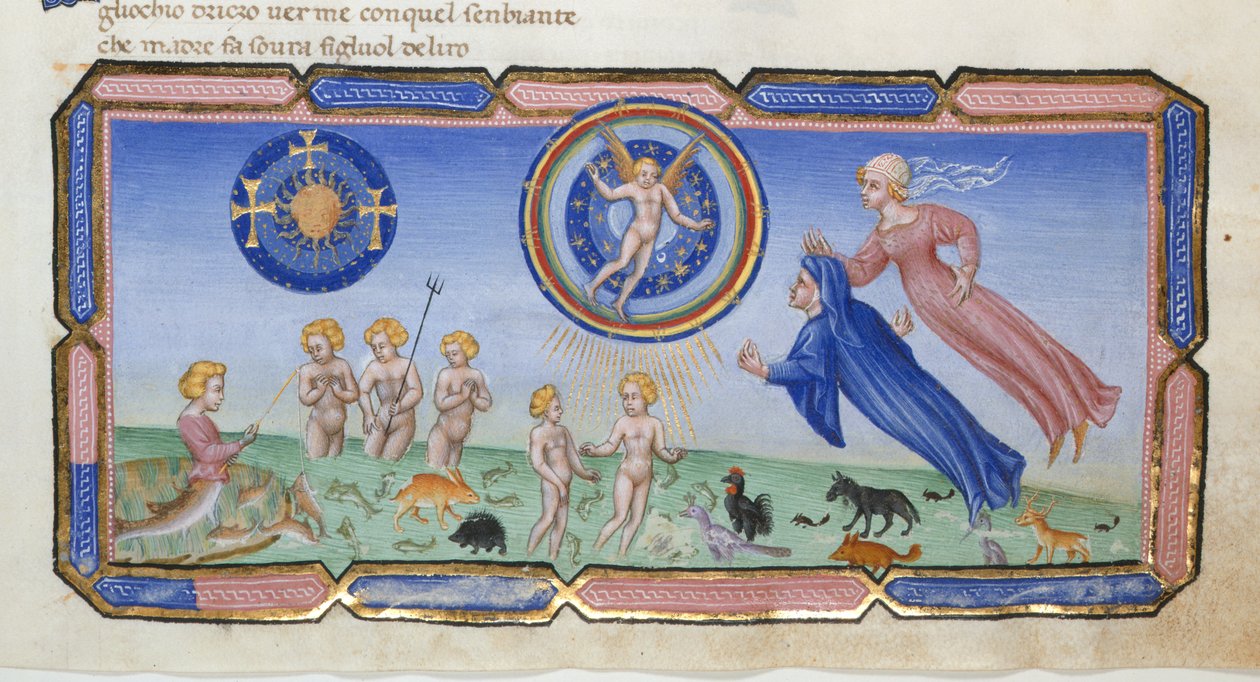 gliochio driczo uer me conquel senbiante
che madre fa soura figluol deliro